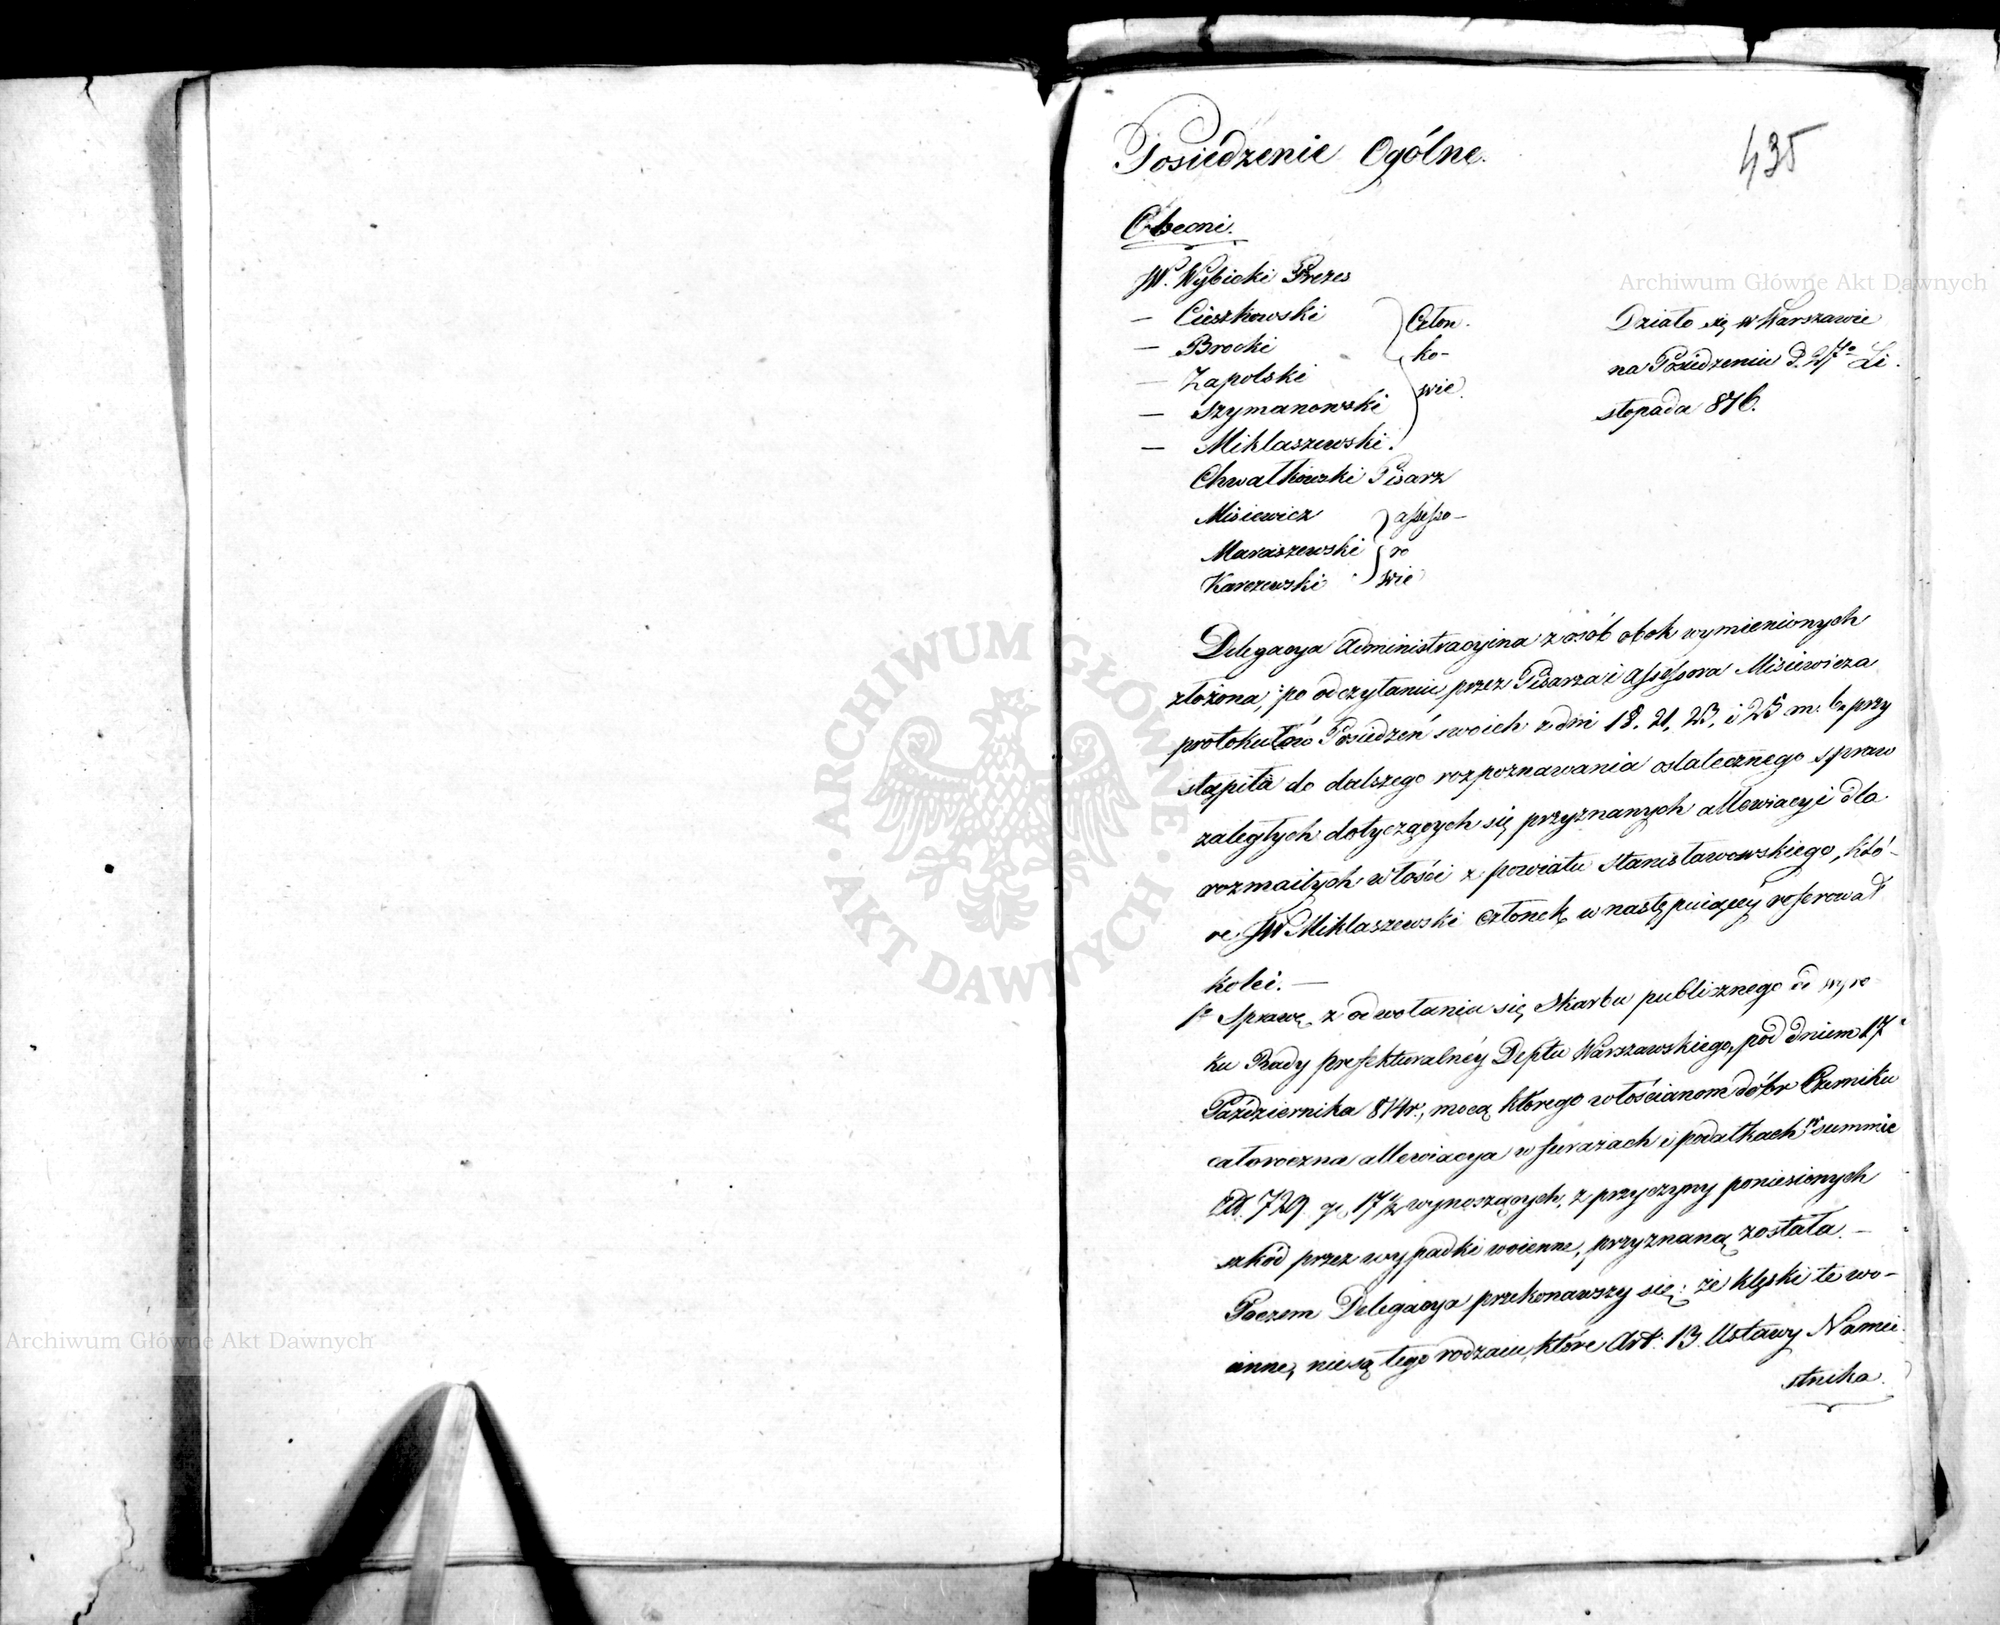 435
Posiedzenie Ogólne.
Obecni.
JW. Wybicki Prezes
— Cieszkowski
— Brocki
— Zapolski
— Szymanowski
— Miklaszewski.
Człon.
ko-
wie.
Chwałkowski Pisarz
Misiewicz
Maraszewski
Karczewski
assesso-
ro
wie
Działo się w Warszawie
na Posiedzeniu d. 27º Li.
stopada 816.
Delegacya Administracyina z osób obok wymienionych
złożona, po odczytaniu przez Pisarza i assessora Misiewicza
protokułów Posiedzeń swoich z dni 18. 21, 23, i 25 m. b. przy
stąpiła do dalszego rozpoznawania ostatecznego spraw
zaległych dotyczących się przyznanych allewiacyi dla
rozmaitych włości z powiatu Stanisławowskiego, któ-
re JW Miklaszewski Członek w następuiącéy referował
kolei. —
1º Sprawę z odwołania się Skarbu publicznego od wyro
ku Rady prefekturalnéy Deptu Warszawskiego, pod dniem 17
Października 814 r., mocą którego włościanom dóbr Czerniku
całoroczna allewiacya w furażach i podatkach w summie
Zł. 729 gr. 17 1/2 wynoszących, z przyczyny poniesionych
szkód przez wypadki woienne, przyznaną została. —
Poczem Delegacya przekonawszy się: że klęski te wo-
ienne, nie są tego rodzaiu, które Art: 13 Ustawy Namie
stnika.
Archiwum Główne Akt Dawnych
Archiwum Główne Akt Dawnych
ARCHIWUM GŁÓWNE AKT DAWNYCH